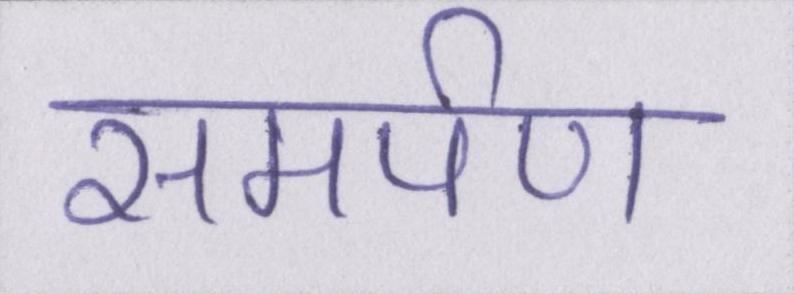 समर्पण